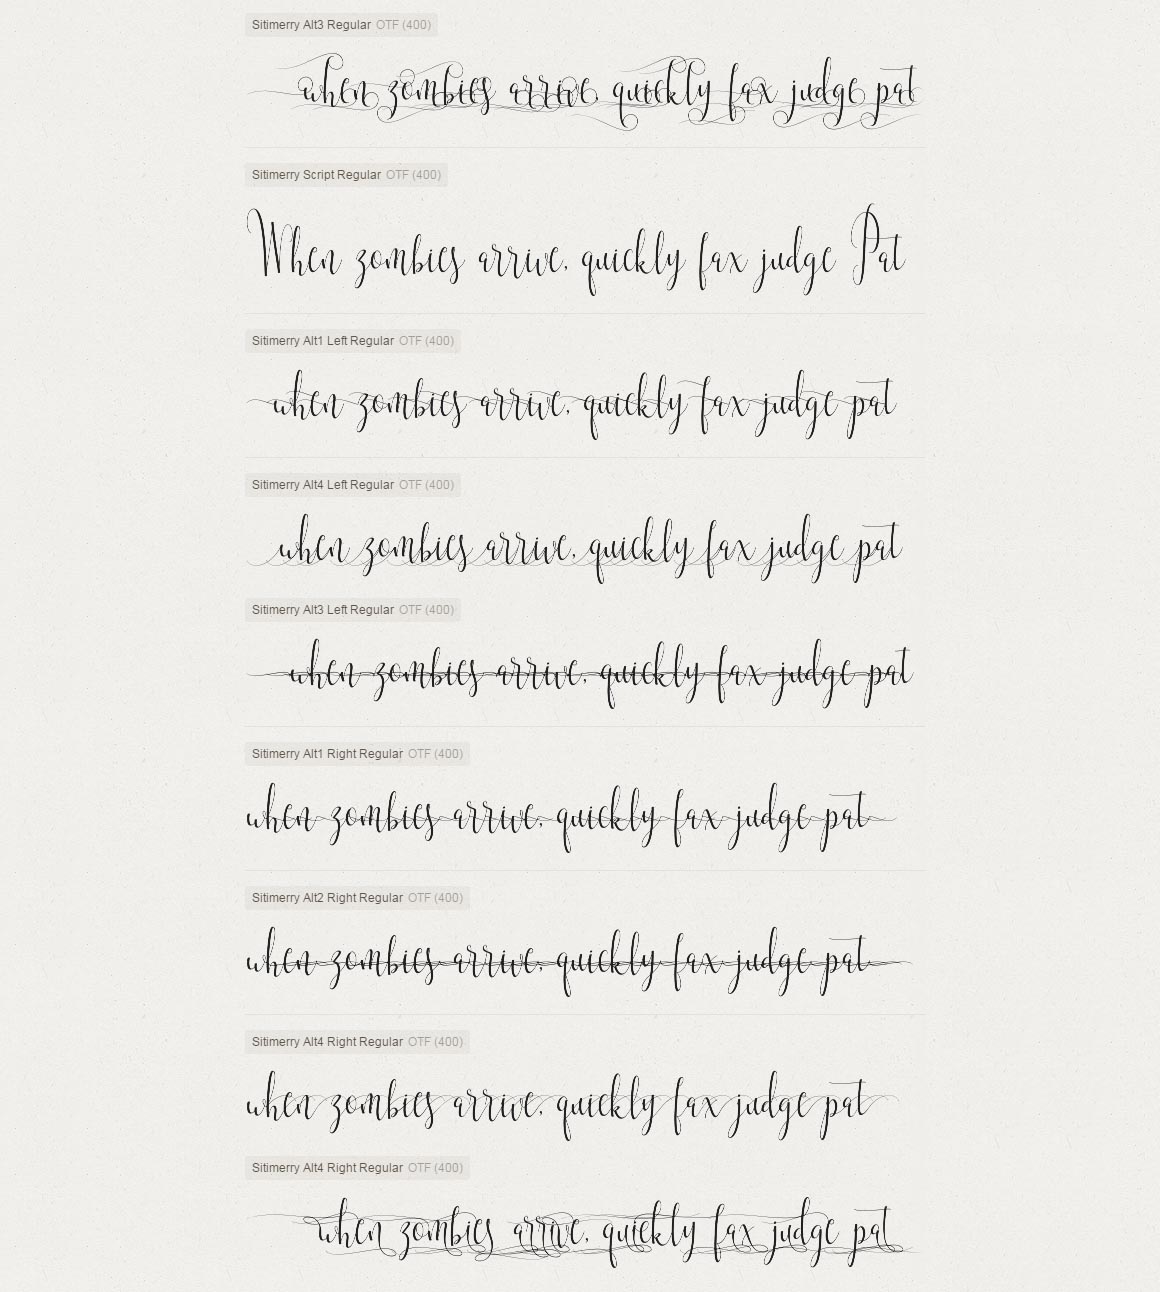 Sitimerry Alt3 Regular OTF (400)
when zombies arrive, quickly fax judge pat
Sitimerry Script Regular OTF (400)
When zombies arrive, quickly fax judge Pat
Sitimerry Alt1 Left Regular OTF (400)
when zombies arrive, quickly fax judge pat
Sitimerry Alt4 Left Regular OTF (400)
when zombies arrive, quickly fax judge pat
Sitimerry Alt3 Left Regular OTF (400)
when zombies arrive, quickly fax judge pat
Sitimerry Alt1 Right Regular OTF (400)
when zombies arrive, quickly fax judge pat
Sitimerry Alt2 Right Regular OTF (400)
when zombies arrive, quickly fax judge pat
Sitimerry Alt4 Right Regular OTF (400)
when zombies arrive, quickly fax judge pat
Sitimerry Alt4 Right Regular OTF (400)
when zombies arrive, quickly fax judge pat